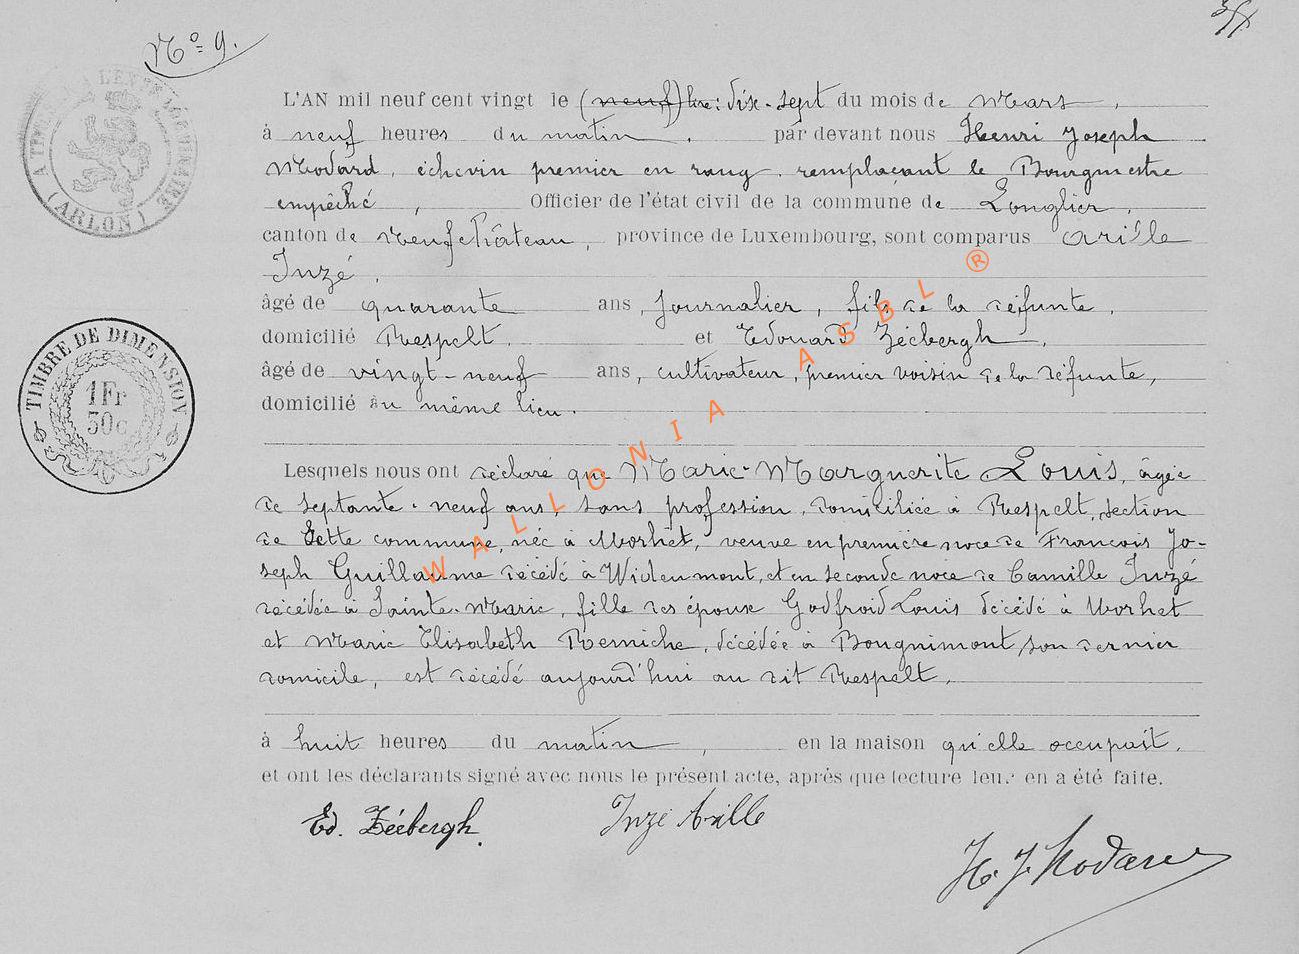 N° 9.
A L'EXTRAORDINAIRE
(ARLON)
L'AN mil neuf cent vingt le (neuf) lire: dix-sept du mois de Mars,
à neuf heures du matin, par devant nous Henri Joseph
Modard, échevin premier en rang, remplaçant le Bourgmestre
empêché, Officier de l'état civil de la commune de Longlier,
canton de Neufchâteau, province de Luxembourg, sont comparus Arille
Inzé,
âgé de quarante ans, journalier, fils de la défunte,
domicilié Respelt, et Edouard Zéebergh,
âgé de vingt-neuf ans, cultivateur, premier voisin de la défunte,
domicilié au même lieu.
TIMBRE DE DIMENSION
1Fr
50c
Lesquels nous ont déclaré que Marie-Marguerite Louis, âgée
de septante-neuf ans, sans profession, domiciliée à Respelt, section
de cette commune, née à Morhet, veuve en première noce de Francois Jo-
seph Guillaume décédé à Wideumont, et en seconde noce de Camille Inzé
décédée à Sainte-Marie, fille des époux Godfroid Louis décédé à Morhet
et Marie Elisabeth Remiche, décédée à Bougnimont, son dernier
domicile, est décédé aujourd'hui au dit Respelt,
à huit heures du matin, en la maison qu'elle occupait.
et ont les déclarants signé avec nous le présent acte, après que lecture leur en a été faite.
Ed. Zéebergh.
Inzé Arille
H. J. Modard
WALLONIA ASBL ®